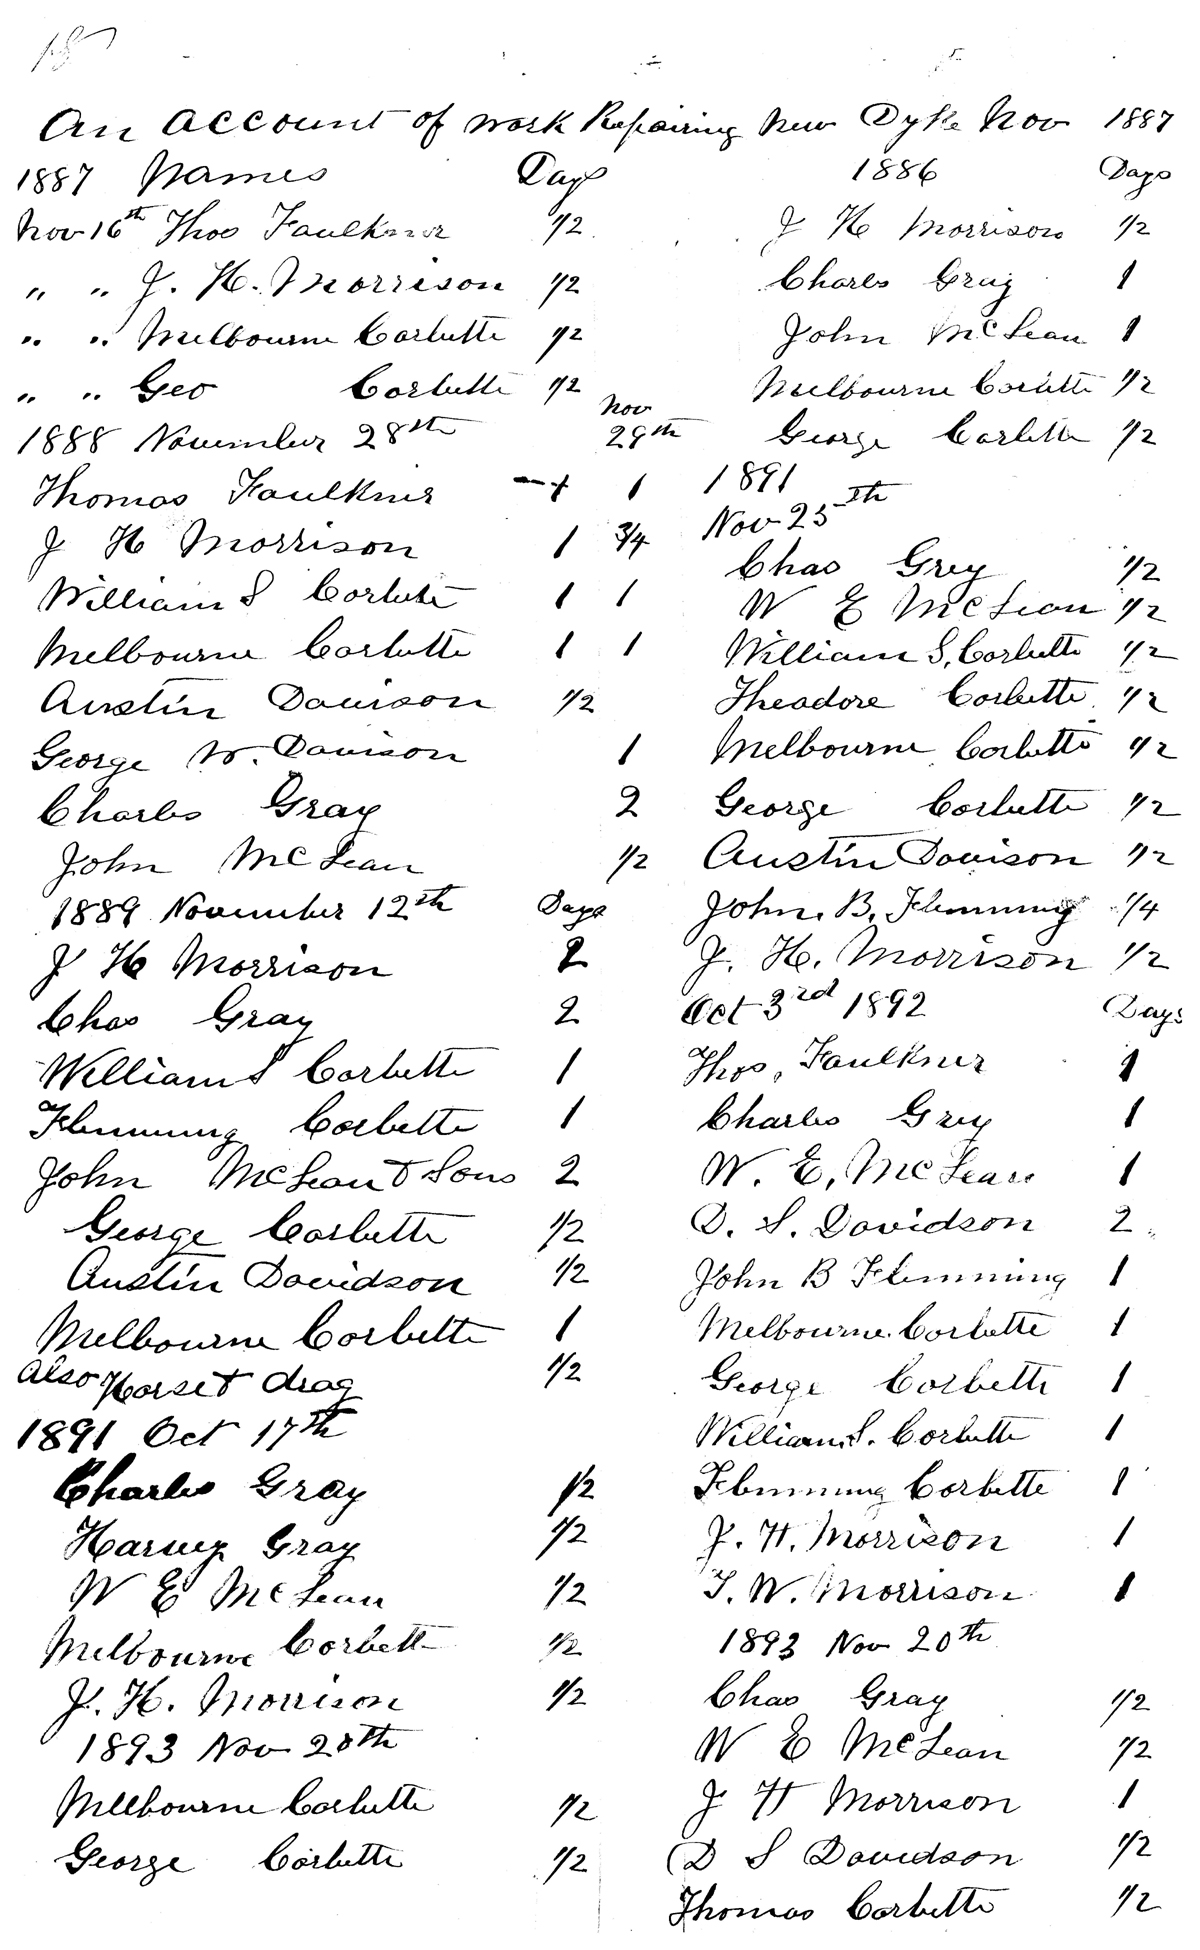 An account of work Repairing New Dyke Nov 1887
1887 Names Days
Nov 16th Thos Faulkner 1/2
" " J. H. Morrison 1/2
" " Melbourne Corbette 1/2
" " Geo Corbette 1/2
1888 November 28th Nov 29th
Thomas Faulkner 1
J H Morrison 1 3/4
William S Corbette 1 1
Melbourne Corbette 1 1
Austin Davison 1/2
George W. Davison 1
Charles Gray 2
John McLean 1/2
1889 November 12th Days
J H Morrison 2
Chas Gray 2
William S Corbette 1
Flemming Corbette 1
John McLean & Sons 2
George Corbette 1/2
Austin Davidson 1/2
Melbourne Corbette 1
also Horse & drag 1/2
1891 Oct 17th
Charles Gray 1/2
Harvey Gray 1/2
W E McLean 1/2
Melbourne Corbett 1/2
J. H. Morrison 1/2
1893 Nov 20th
Melbourne Corbette 1/2
George Corbette 1/2
1886 Days
J H Morrison 1/2
Charles Gray 1
John McLean 1
Melbourne Corbette 1/2
George Corbette 1/2
1891
Nov 25th
Chas Grey 1/2
W E McLean 1/2
William S. Corbette 1/2
Theadore Corbette 1/2
Melbourne Corbette 1/2
George Corbette 1/2
Austin Davison 1/2
John. B. Flemming 1/4
J. H. Morrison 1/2
Oct 3rd 1892 Days
Thos. Faulkner 1
Charles Grey 1
W. E. McLean 1
D. S. Davidson 2
John B Flemming 1
Melbourne Corbette 1
George Corbette 1
William S. Corbette 1
Flemming Corbette 1
J. H. Morrison 1
T. W. Morrison 1
1893 Nov 20th
Chas Gray 1/2
W E McLean 1/2
J H Morrison 1
D S Davidson 1/2
Thomas Corbette 1/2